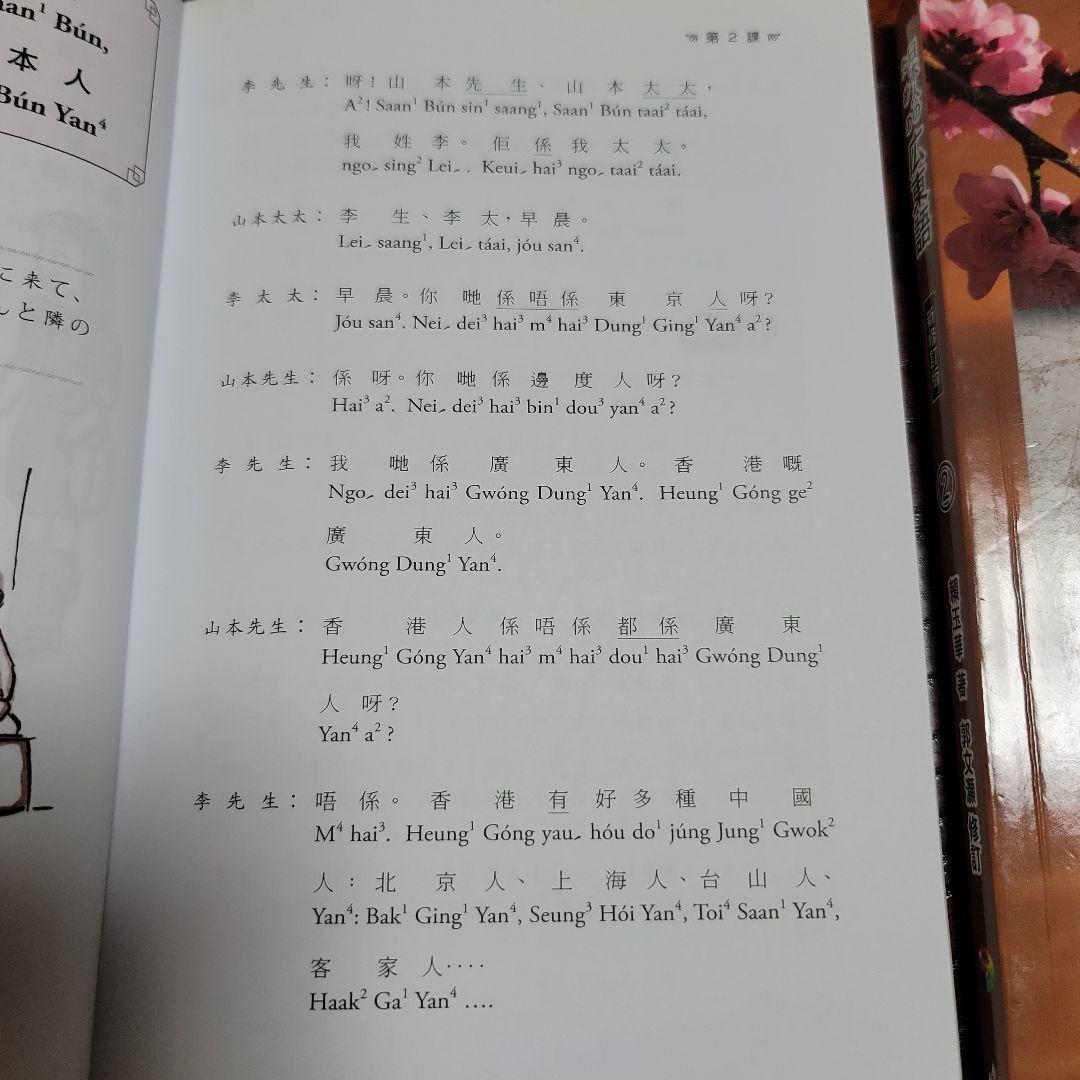 aan¹ Bún,
本 人
Bún Yan⁴
こ来て、
んと隣の
第 2 課
李先生：呀！山本先生、山本太太，
A²! Saan¹ Bún sin¹ saang¹, Saan¹ Bún taai² táai,
我姓李。佢係我太太。
ngoˏ sing² Leiˏ. Keuiˏ hai³ ngoˏ taai² táai.
山本太太：李生、李太，早晨。
Leiˏ saang¹, Leiˏ táai, jóu san⁴.
李太太：早晨。你哋係唔係東京人呀？
Jóu san⁴. Neiˏ dei³ hai³ m⁴ hai³ Dung¹ Ging¹ Yan⁴ a²?
山本先生：係呀。你哋係邊度人呀？
Hai³ a². Neiˏ dei³ hai³ bin¹ dou³ yan⁴ a²?
李先生：我哋係廣東人。香港嘅
Ngoˏ dei³ hai³ Gwóng Dung¹ Yan⁴. Heung¹ Góng ge²
廣東人。
Gwóng Dung¹ Yan⁴.
山本先生：香港人係唔係都係廣東
Heung¹ Góng Yan⁴ hai³ m⁴ hai³ dou¹ hai³ Gwóng Dung¹
人呀？
Yan⁴ a²?
李先生：唔係。香港有好多種中國
M⁴ hai³. Heung¹ Góng yauˏ hóu do¹ júng Jung¹ Gwok²
人：北京人、上海人、台山人、
Yan⁴: Bak¹ Ging¹ Yan⁴, Seung³ Hói Yan⁴, Toi⁴ Saan¹ Yan⁴,
客家人‥‥
Haak² Ga¹ Yan⁴ ....
新修訂版
②
賴玉華 著 郭文灝 修訂